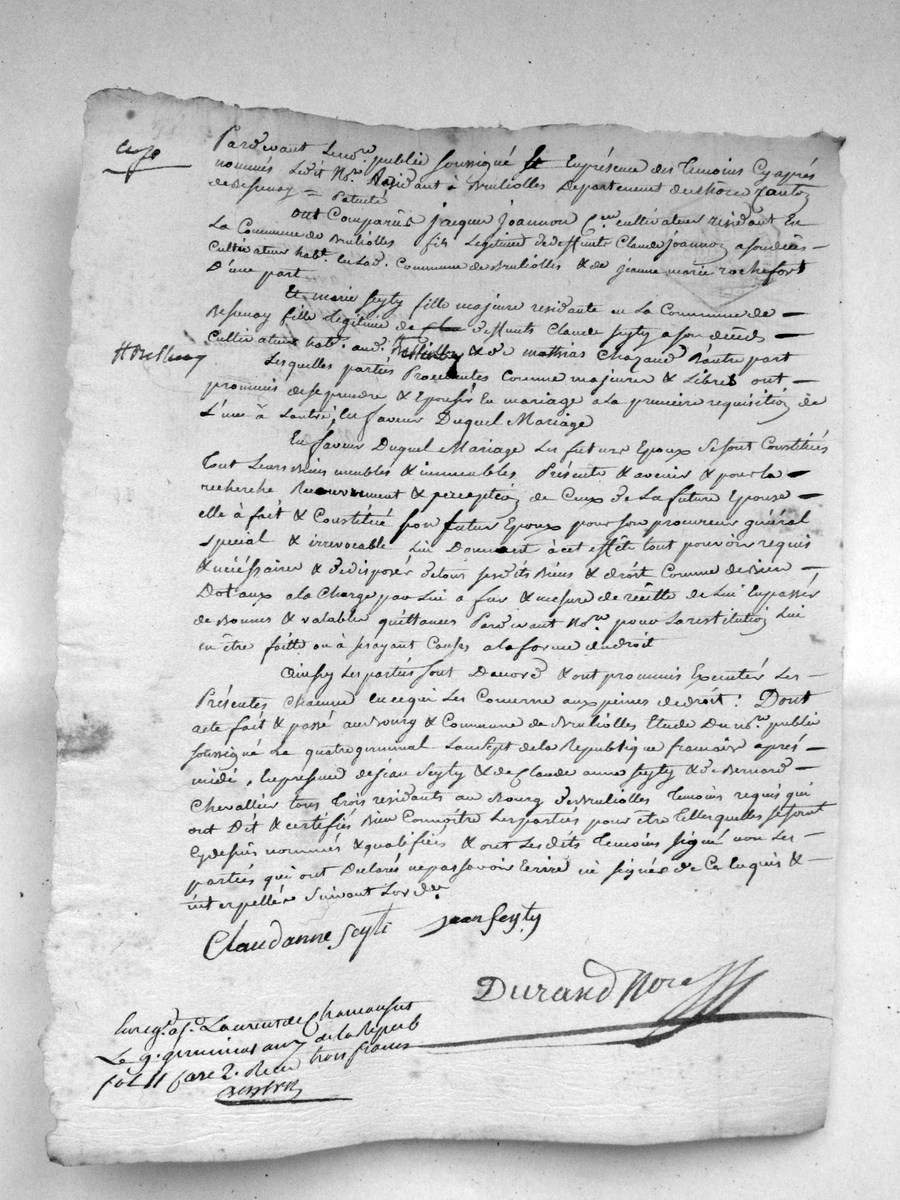 Pardevant Le no.re public soussigné Et En présence des Temoins Cy après
nommés Ledit No.re Résidant à Brulliolles Departement du rhône Canton
de Bessenay = Patenté
ont Comparûs jacque joannon C.en cultivateur residant En
La Commune de Brulliolles fils Legitime de deffunts Claude joannon a son décès
Cultivateur habt. en Lad. Commune de Brulliolles & de jeanne marie rochefort
D'une part
Et marie Seyty fille majeure residante en La Commune de
Bessenay fille Legitime de deffunts Claude Seyty a son décès
Cultivateur habt. aud. & de mathias Chazaud D'autre part
Lesquelles parties Procedantes Comme majeures & Libres ont
prommis de se prendre & Epouser En mariage a La premiere requisition de
L'une à Lautre, En faveur Duquel Mariage
En faveur Duquel Mariage Les future Epoux Se sont Constitués
Tout Leurs Biens meubles & immeubles Présents & avenir & pour la
recherche Recouvrement & perception de Ceux de La future Epouse
elle à fait & Constitué son futur Epoux pour son procureur général
special & irrevocable Lui Donnant à cet effêt tout pouvoir requis
& nécéssaire & de disposér de tous ses dits Biens & droit Comme de Bien
Dotaux a la Charge par Lui a fur & mesure de recette de Lui En passér
de Bonnes & valables quittances Pardevant No.re pour La restitution Lui
en être faitte ou à ses ayant Causes a la forme du droit
Ainsy Les partiés sont D'acord & ont prommis Executér Les
Présentes chacune en ce qui Les Concerne aux peines de droit: Dont
acte fait & passé au Bourg & Commune de Brulliolles Etude Du no.re public
soussigné Le quatre germinal Lan Sept de la Republique francaise après
midi, En présence de jean Seyty & de Claude anne Seyty & de Bernard
Chevallier tous Trois residants au Bourg de Brulliolles Temoins requis qui
ont Dit & certifiés Bien Connoître Les parties pour être Telles quelles se sont
Cy dessus nommés & qualifiées & ont Les dits Temoins Signé non Les
partiés qui ont Declarés ne pas savoir Ecrire ni Signér de Ce Enquis &
interpellés Suivant Loy
Claudanne Seyti jean Seyty
Durand Nore
Enreg.é a S.t Laurent de Chamousset
Le 9. germinal an 7 de la Repub
fol 11 Case 2. Recu trois francs